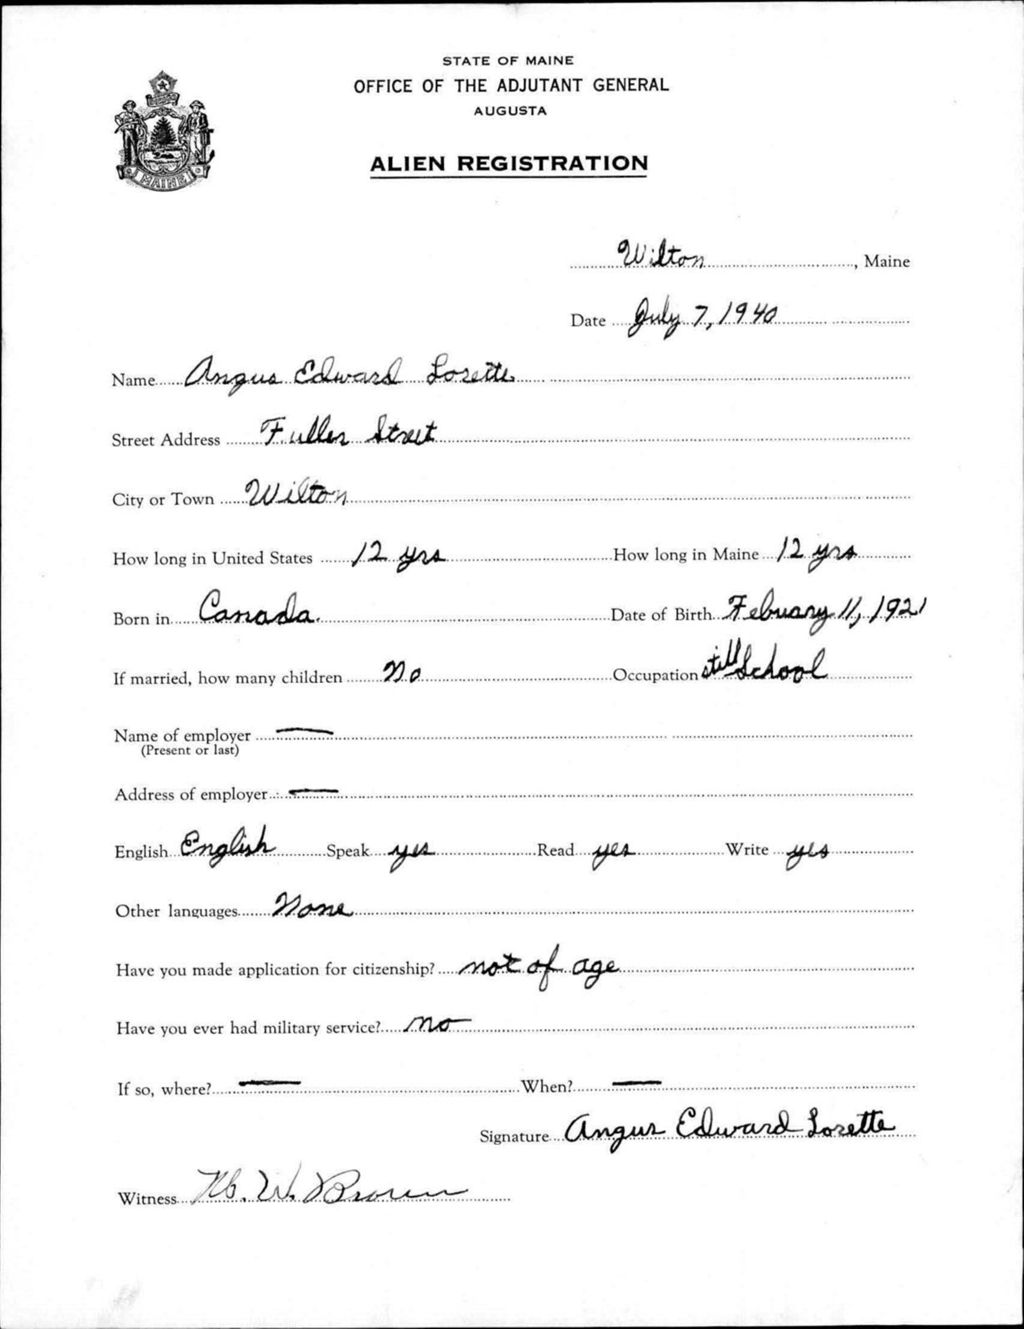 STATE OF MAINE
OFFICE OF THE ADJUTANT GENERAL
AUGUSTA
ALIEN REGISTRATION
MAINE
Wilton, Maine
Date July 7, 1940
Name Angus Edward Lorette
Street Address Fuller Street
City or Town Wilton
How long in United States 12 yrs How long in Maine 12 yrs
Born in Canada. Date of Birth Febuary 11, 1921
If married, how many children No Occupation still School
Name of employer —
(Present or last)
Address of employer —
English English Speak yes Read yes Write yes
Other languages None
Have you made application for citizenship? not of age
Have you ever had military service? no
If so, where? — When? —
Signature Angus Edward Lorette
Witness W. Brown